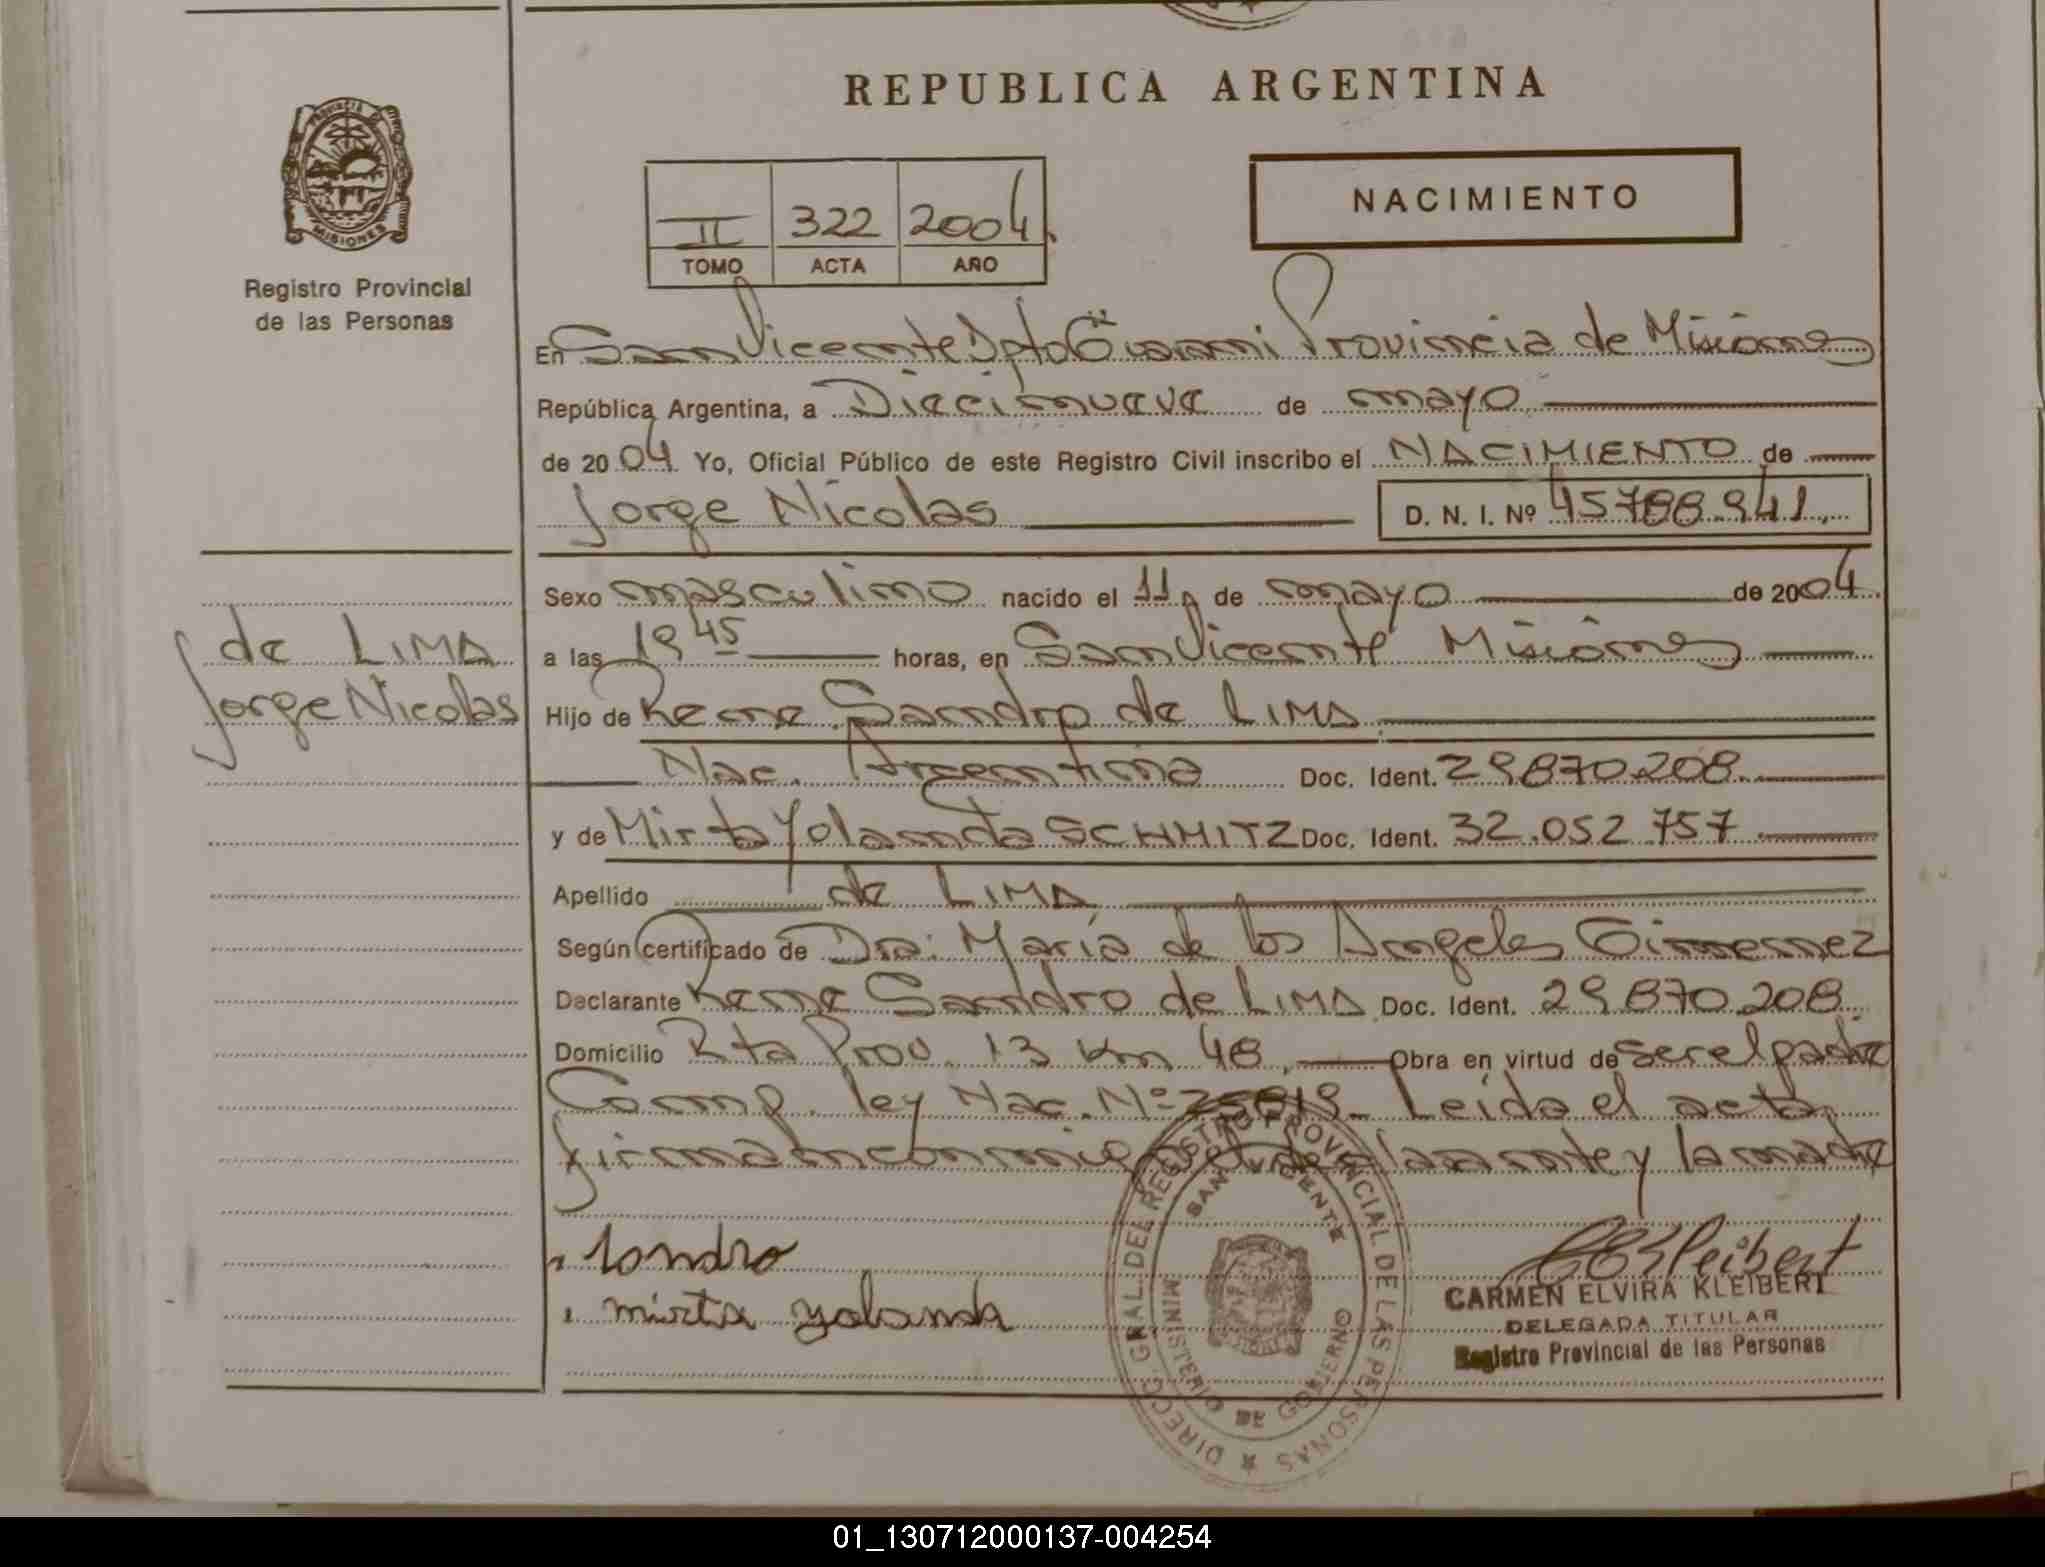 REPUBLICA ARGENTINA
PROVINCIA DE
MISIONES
Registro Provincial
de las Personas
NACIMIENTO
II 322 2004
TOMO ACTA AÑO
En San Vicente Dpto Guarani Provincia de Misiones
República Argentina, a Diecinueve de mayo
de 2004 Yo, Oficial Público de este Registro Civil inscribo el NACIMIENTO de
Jorge Nicolas D. N. I. Nº 45788941
Sexo masculino nacido el 11 de mayo de 2004
de LIMA
Jorge Nicolas
a las 19 45 horas, en San Vicente Misiones
Hijo de Rene Sandro de LIMA
Nac. Argentina Doc. Ident. 29870208
y de Mirta Yolanda SCHMITZ Doc. Ident. 32.052.757
Apellido de LIMA
Según certificado de Dra. María de los Angeles Gimenez
Declarante Rene Sandro de LIMA Doc. Ident. 29870208
Domicilio Rta Prov. 13 Km 48, Obra en virtud de ser el padre
Comp. ley Nac. Nº 25819 Leída el acta,
firman conmigo el declarante y la madre
sandro
mirta yolanda
CEKleibert
CARMEN ELVIRA KLEIBERT
DELEGADA TITULAR
Registro Provincial de las Personas
DIRECC. GRAL. DEL REGISTRO PROVINCIAL DE LAS PERSONAS
SAN VICENTE
MINISTERIO DE GOBIERNO
01_130712000137-004254